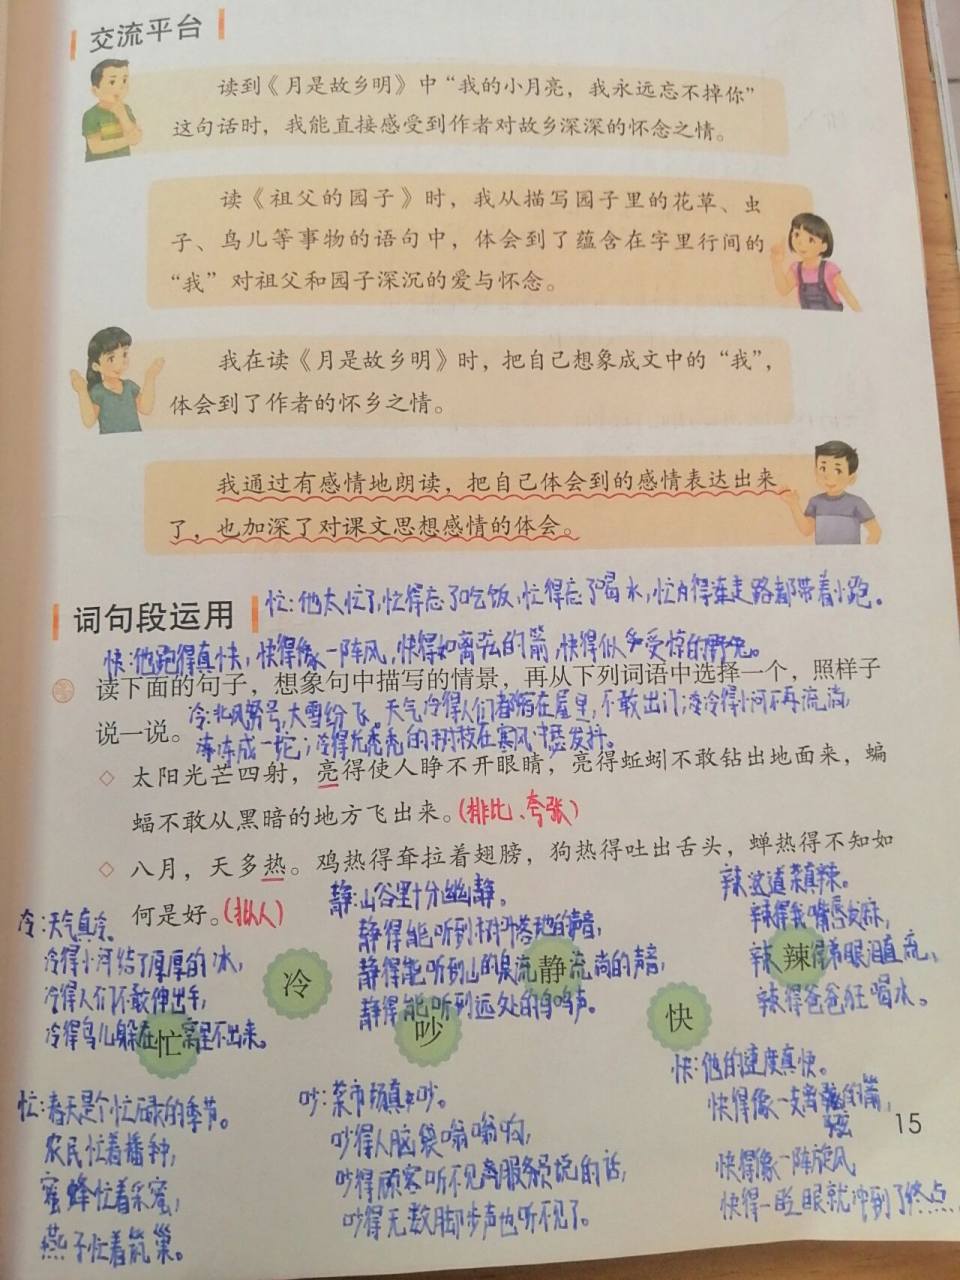 交流平台
读到《月是故乡明》中“我的小月亮，我永远忘不掉你”
这句话时，我能直接感受到作者对故乡深深的怀念之情。
读《祖父的园子》时，我从描写园子里的花草、虫
子、鸟儿等事物的语句中，体会到了蕴含在字里行间的
“我”对祖父和园子深沉的爱与怀念。
我在读《月是故乡明》时，把自己想象成文中的“我”，
体会到了作者的怀乡之情。
我通过有感情地朗读，把自己体会到的感情表达出来
了，也加深了对课文思想感情的体会。
忙：他太忙了，忙得忘了吃饭，忙得忘了喝水，忙得连走路都带着小跑。
词句段运用
快：他跑得真快，快得像一阵风，快得如离弦的箭，快得似受惊的野兔。
读下面的句子，想象句中描写的情景，再从下列词语中选择一个，照样子
冷：北风怒号，大雪纷飞。天气冷得人们都缩在屋里，不敢出门；冷得小河不再流淌，
说一说。
冻成一坨；冷得光秃秃的树枝在寒风中瑟发抖。
太阳光芒四射，亮得使人睁不开眼睛，亮得蚯蚓不敢钻出地面来，蝙
蝠不敢从黑暗的地方飞出来。（排比、夸张）
八月，天多热。鸡热得耷拉着翅膀，狗热得吐出舌头，蝉热得不知如
何是好。（拟人）
冷：天气真冷。
冷得小河结了厚厚的冰，
冷得人们不敢伸出手，
冷得鸟儿躲在窝里不出来。
静：山谷里十分幽静。
静得能听到树叶落地的声音，
静得能听到山的泉流流淌的声音，
静得能听到远处的鸟鸣声。
辣：这道菜真辣。
辣得我嘴唇发麻，
辣得弟弟眼泪直流，
辣得爸爸狂喝水。
冷
静
辣
忙
吵
快
忙：春天是个忙碌的季节。
农民忙着播种，
蜜蜂忙着采蜜，
燕子忙着筑巢。
吵：菜市场真吵。
吵得人脑袋嗡嗡响，
吵得顾客听不见服务员说的话，
吵得无数脚步声也听不见了。
快：他的速度真快。
快得像一支离弦的箭，
快得像一阵旋风
快得一眨眼就冲到了终点。
15